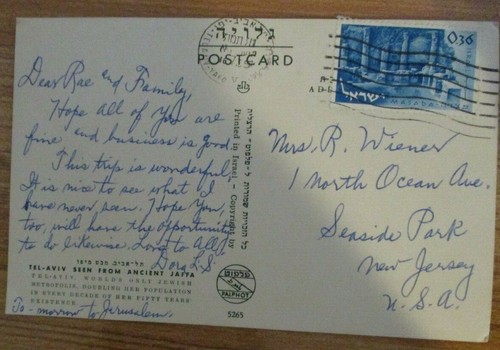 גלויה
POSTCARD
0.36
ישראל
Dear Rae and Family,
Hope all of you are
fine and business is good.
This trip is wonderful.
It is nice to see what I
have never seen. Hope you,
too, will have the opportunity
to do likewise. Love to All,
Dora L.S.
תל-אביב, מבט מיפו
TEL-AVIV SEEN FROM ANCIENT JAFFA
TEL-AVIV, WORLD'S ONLY JEWISH
METROPOLIS, DOUBLING HER POPULATION
IN EVERY DECADE OF HER FIFTY YEARS'
EXISTENCE.
To-morrow to Jerusalem.
Printed in Israel - Copyright by
כל הזכויות שמורות ל"פלפוט" הרצליה
פלפוט
PALPHOT
5265
Mrs. R. Wiener
1 North Ocean Ave.
Seaside Park
New Jersey
U.S.A.